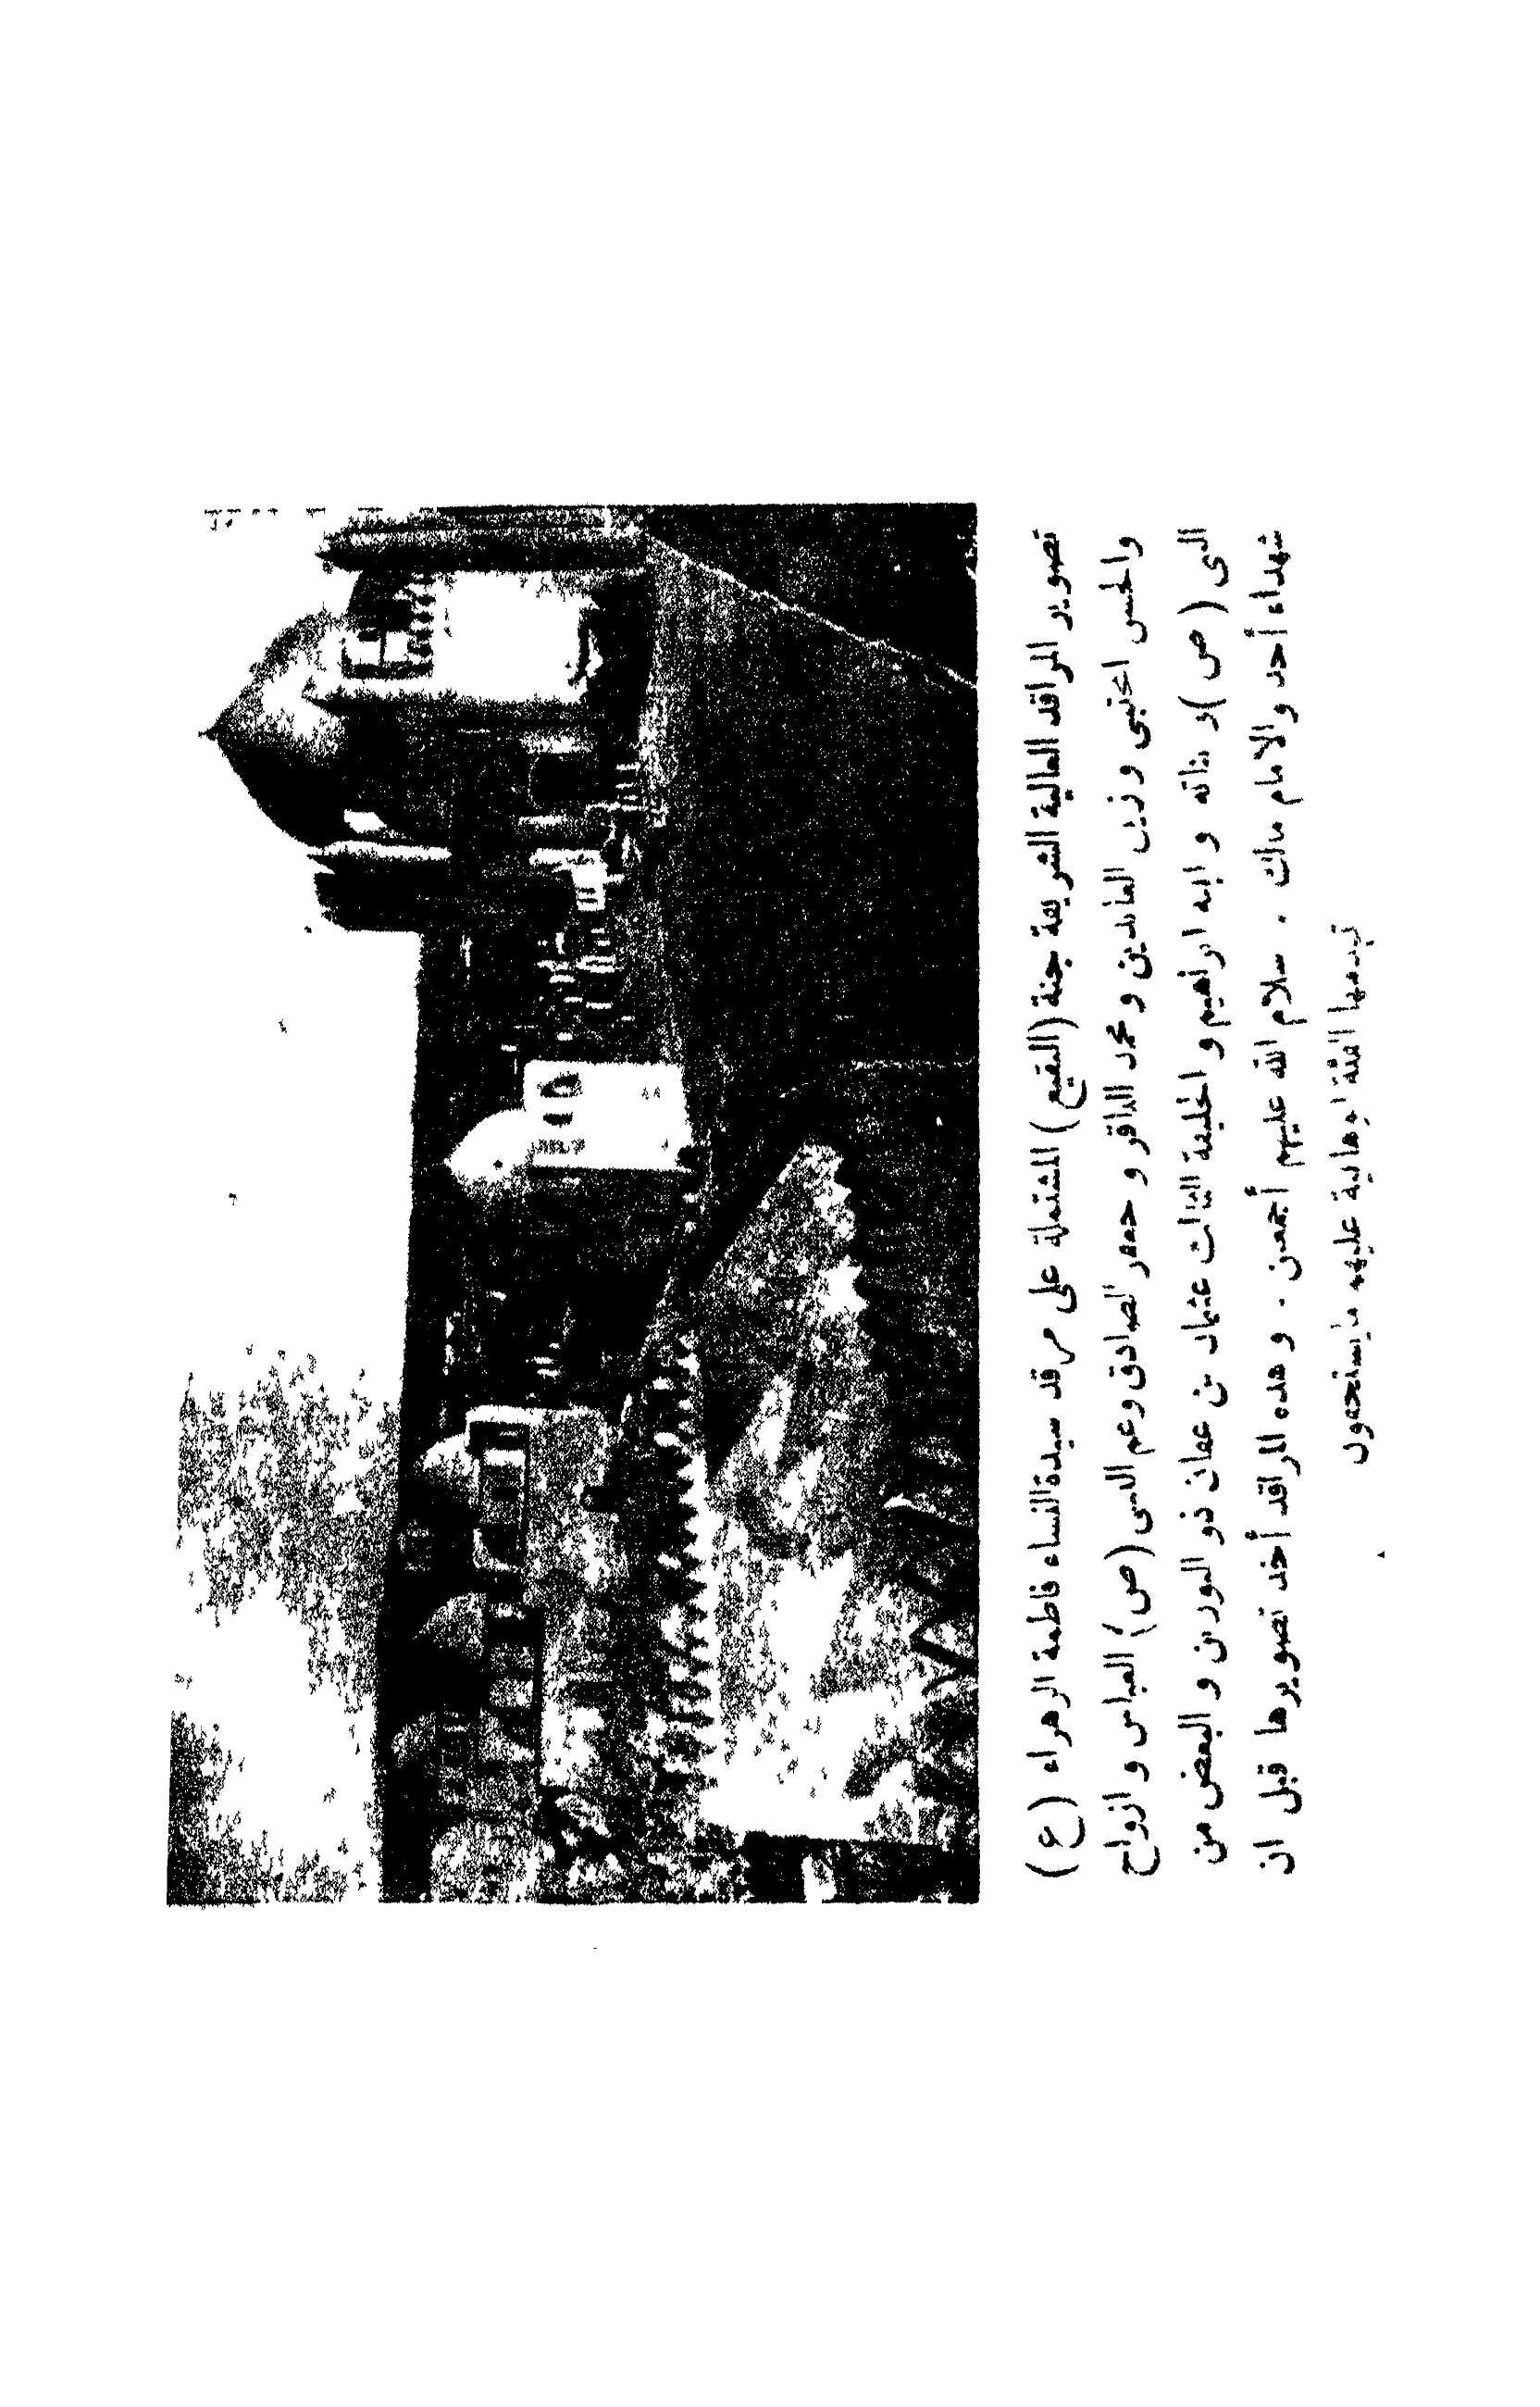 تصوير المراقد العالية الشريفة بجنة (البقيع) المشتملة على مرقد سيدة النساء فاطمة الزهراء (ع)
والحسن المجتبى وزين العابدين و محمد الباقر و جعفر الصادق وعم النبي (ص) العباس و ازواج
النبى (ص) و بناته و ابنه ابراهيم و الخليفة الثالث عثمان بن عفان ذو النورين و البعض من
شهداء أحد والامام مالك . سلام الله عليهم أجمعين . و هذه المراقد أخذ تصويرها قبل ان
تهدمها الفئة الوهابية عليهم ما يستحقون